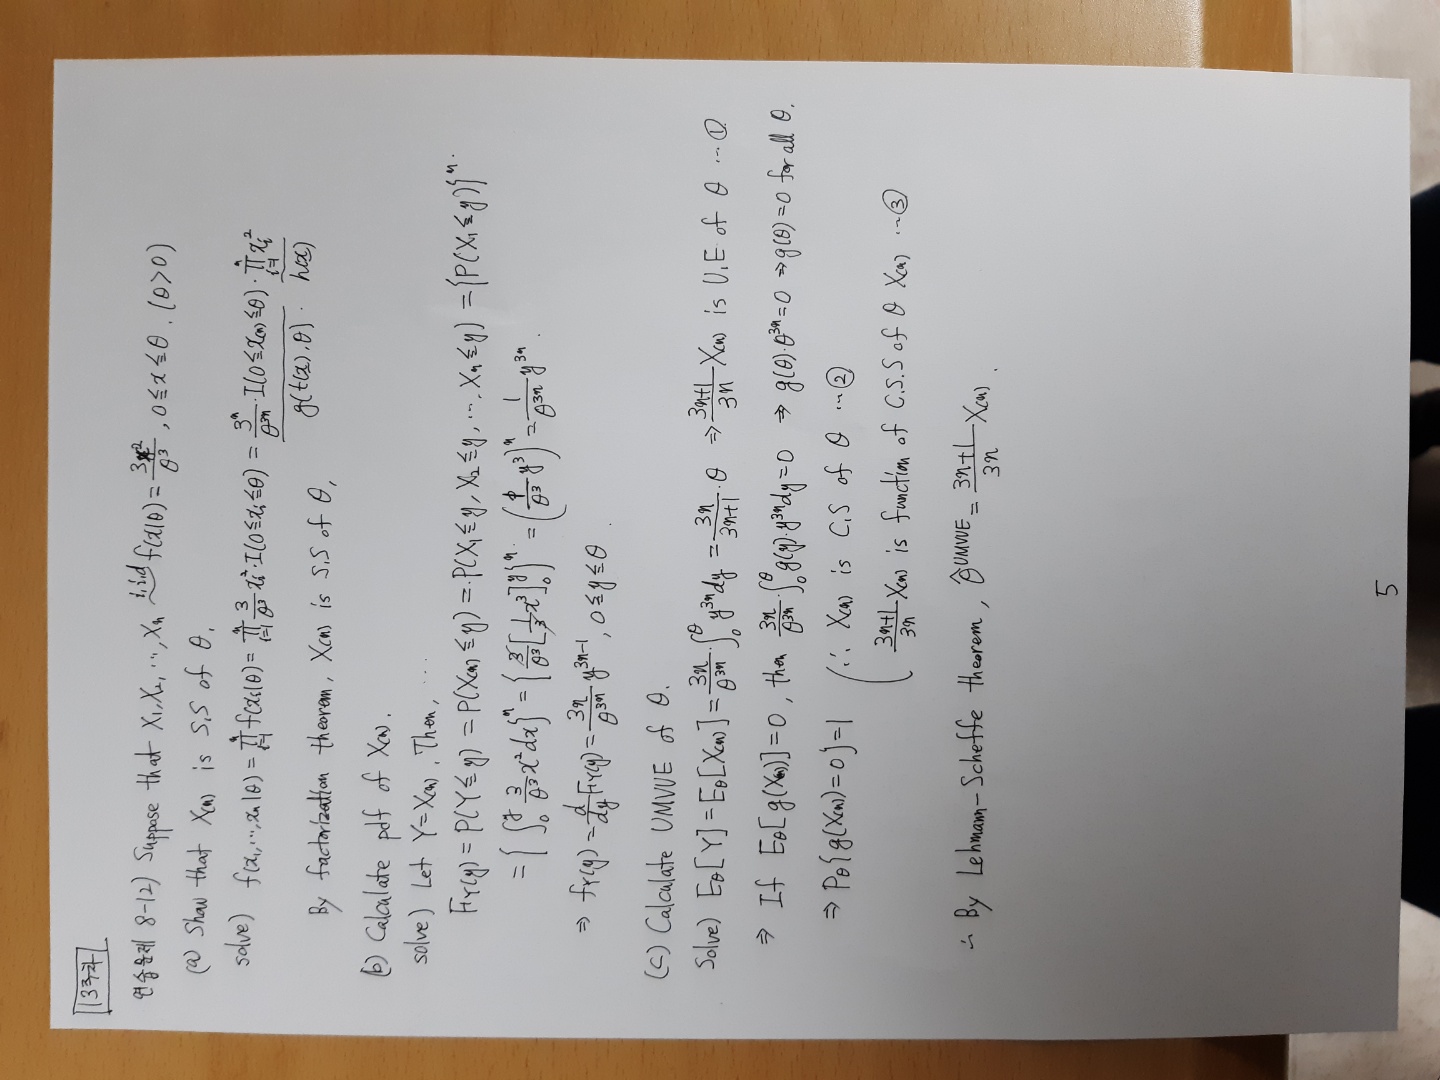 13주차
연습문제 8-12) Suppose that X₁, X₂, ⋯, Xₙ i.i.d ~ f(x|θ) = 3x²/θ³, 0≤x≤θ. (θ>0)
(a) Show that X₍ₙ₎ is S.S of θ.
solve) f(x₁, ⋯, xₙ|θ) = ∏ⁿᵢ₌₁ f(xᵢ|θ) = ∏ⁿᵢ₌₁ 3/θ³ xᵢ² · I(0≤xᵢ≤θ) = 3ⁿ/θ³ⁿ · I(0≤x₍ₙ₎≤θ) · ∏ⁿᵢ₌₁ xᵢ²
g(t(x), θ) · h(x)
By factorization theorem, X₍ₙ₎ is S.S of θ.
(b) Calculate pdf of X₍ₙ₎.
solve) Let Y = X₍ₙ₎. Then, ⋯
F_Y(y) = P(Y≤y) = P(X₍ₙ₎≤y) = P(X₁≤y, X₂≤y, ⋯, Xₙ≤y) = {P(X₁≤y)}ⁿ.
= {∫₀ʸ 3/θ³ x² dx}ⁿ = {3/θ³ [1/3 x³]₀ʸ}ⁿ = (1/θ³ y³)ⁿ = 1/θ³ⁿ y³ⁿ.
⇒ f_Y(y) = d/dy F_Y(y) = 3n/θ³ⁿ y³ⁿ⁻¹, 0≤y≤θ.
(c) Calculate UMVUE of θ.
Solve) E_θ[Y] = E_θ[X₍ₙ₎] = 3n/θ³ⁿ · ∫₀^θ y³ⁿ dy = 3n/3n+1 · θ ⇒ 3n+1/3n X₍ₙ₎ is U.E of θ ⋯ ①
⇒ If E_θ[g(X₍ₙ₎)] = 0, then 3n/θ³ⁿ · ∫₀^θ g(y)·y³ⁿ dy = 0 ⇒ g(θ)·θ³ⁿ = 0 ⇒ g(θ) = 0 for all θ.
⇒ P_θ{g(X₍ₙ₎) = 0} = 1 (∴ X₍ₙ₎ is C.S of θ ⋯ ②
3n+1/3n X₍ₙ₎ is function of C.S.S of θ X₍ₙ₎ ⋯ ③
∴ By Lehmann-Scheffe theorem, θ̂^UMVUE = 3n+1/3n X₍ₙ₎.
5